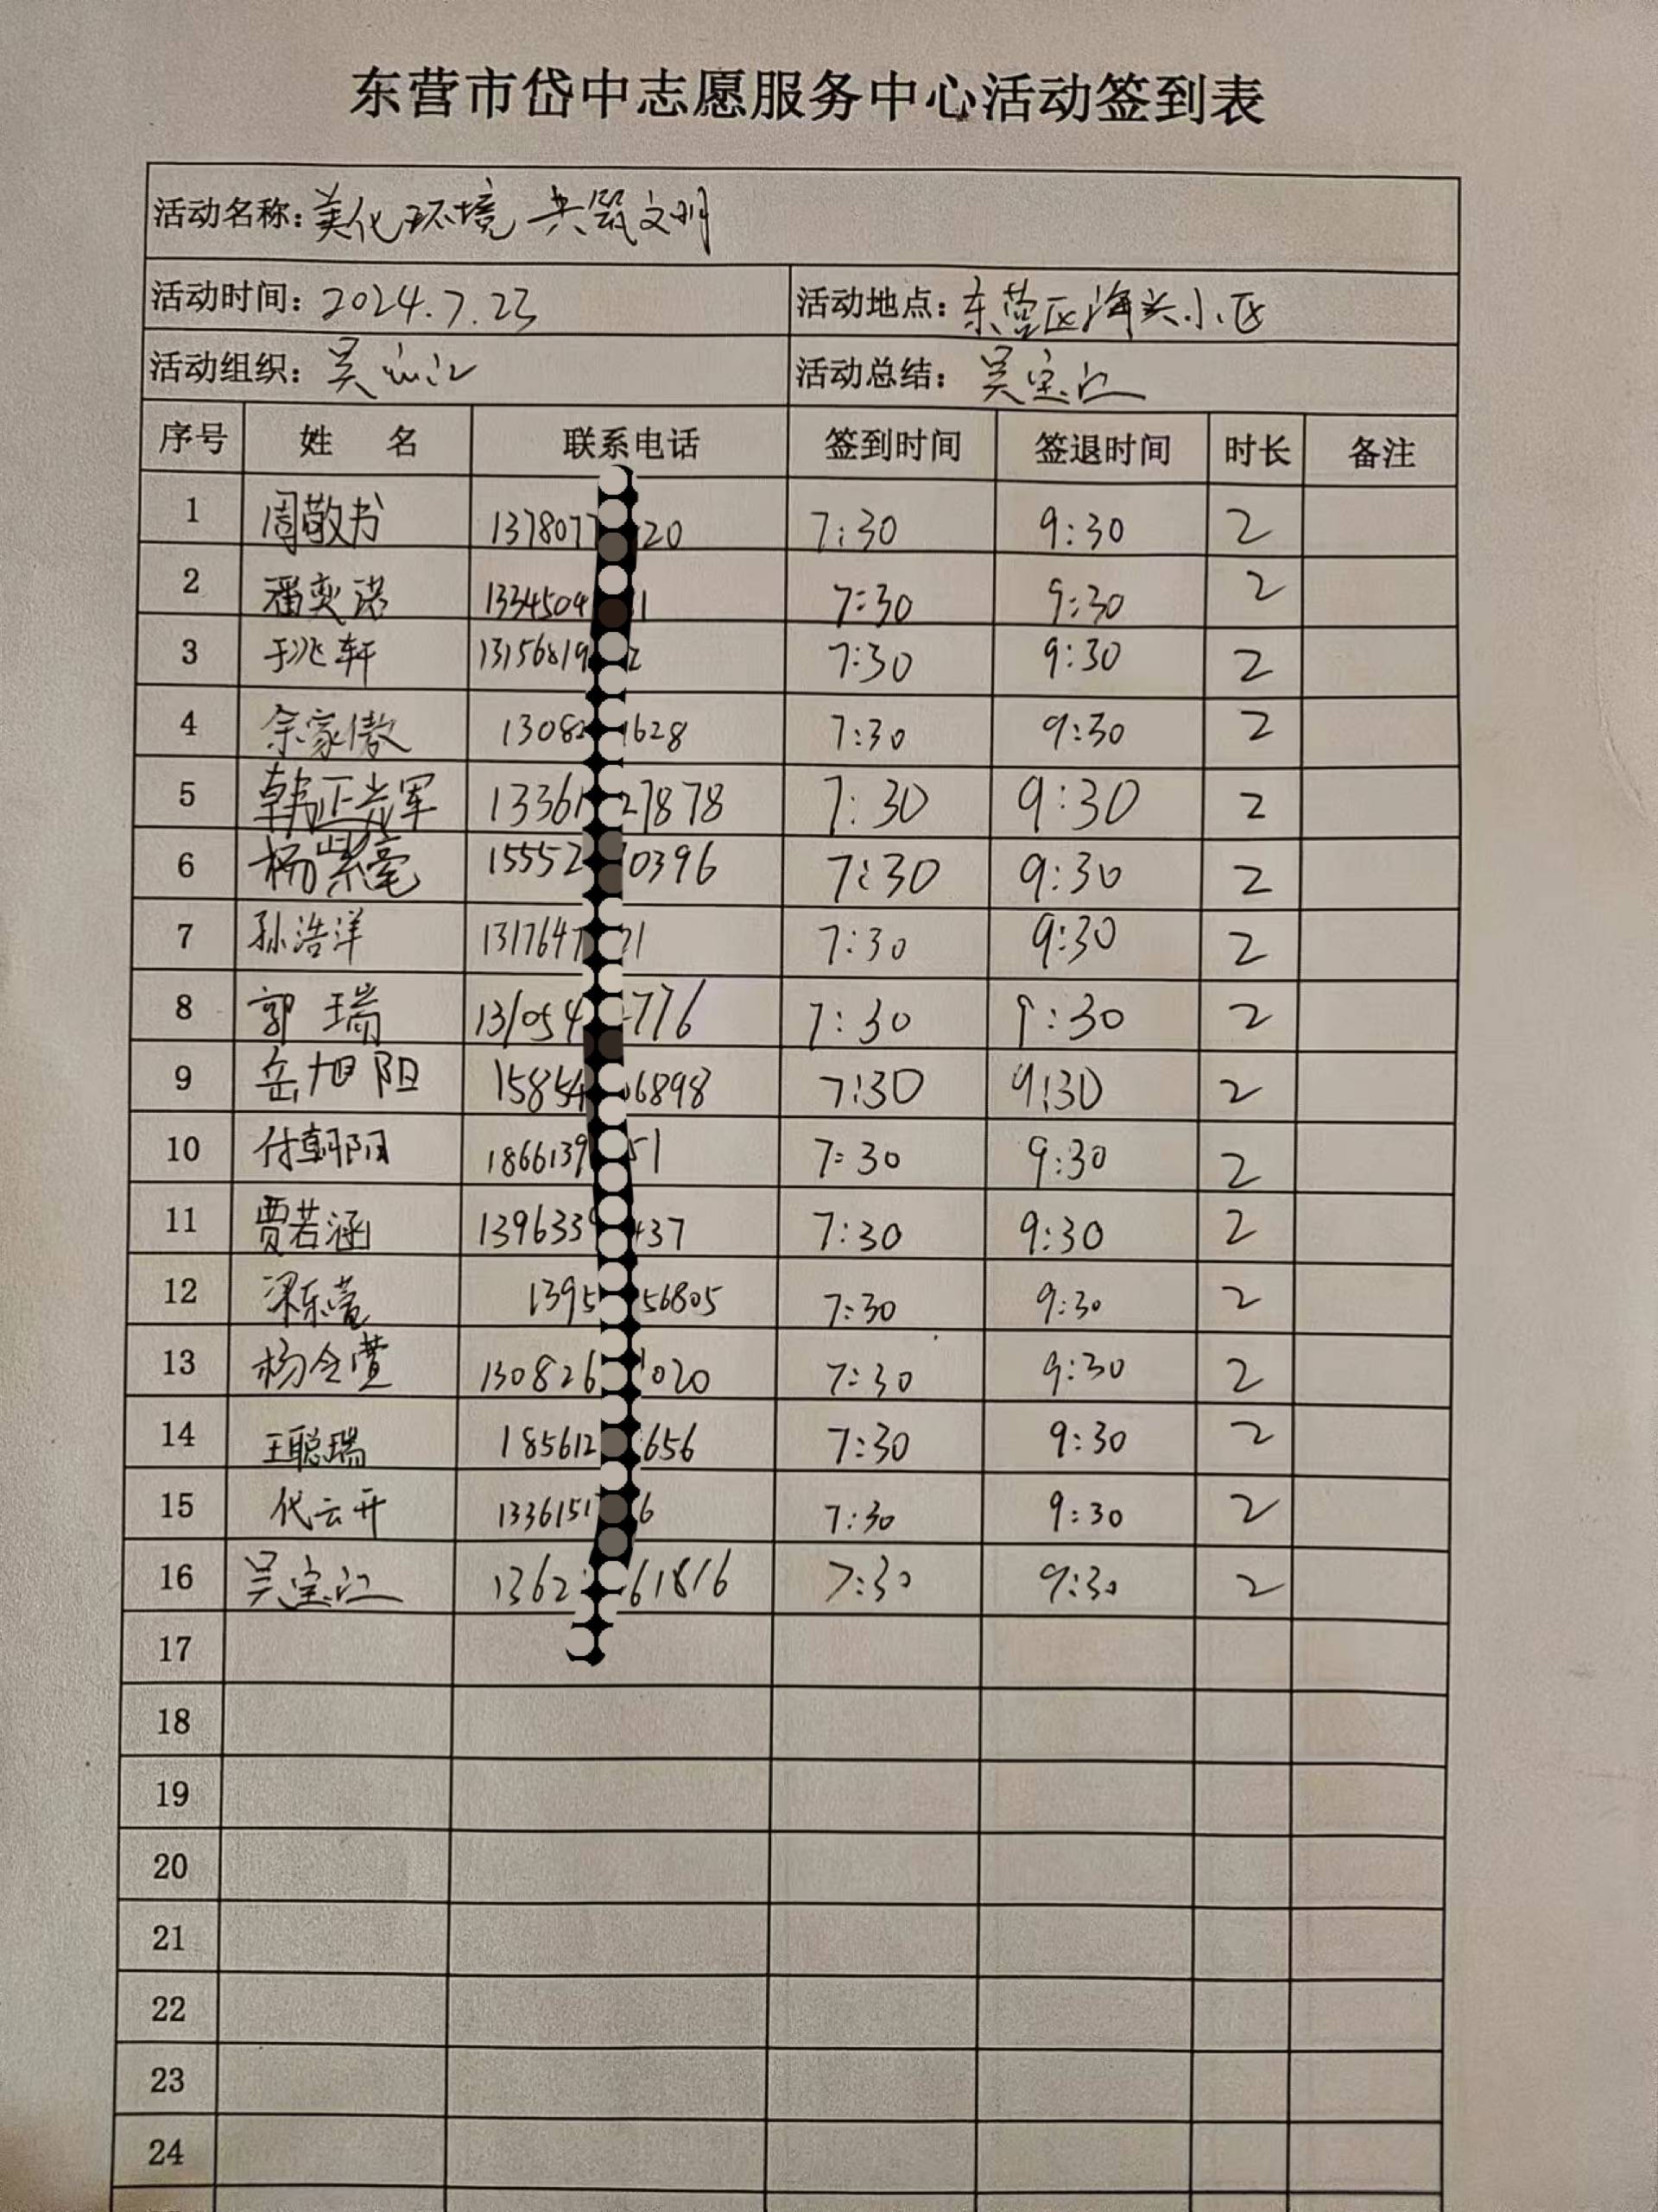 东营市岱中志愿服务中心活动签到表
活动名称：美化环境 共筑文明
活动时间：2024.7.23 活动地点：东营区海关小区
活动组织：吴宝江 活动总结：吴宝江
序号 姓 名 联系电话 签到时间 签退时间 时长 备注
1 周敬书 137807 20 7:30 9:30 2
2 潘奕诺 1334504 1 7:30 9:30 2
3 于兆轩 13156819 2 7:30 9:30 2
4 余家傲 1308 1628 7:30 9:30 2
5 韩正光军 13361 27878 7:30 9:30 2
6 杨紫毫 15552 0396 7:30 9:30 2
7 孙浩洋 1317647 21 7:30 9:30 2
8 郭瑞 131054 776 7:30 9:30 2
9 岳旭阳 15854 6898 7:30 9:30 2
10 付朝阳 1866139 51 7:30 9:30 2
11 贾若涵 139633 437 7:30 9:30 2
12 梁东莹 1395 56805 7:30 9:30 2
13 杨令萱 130826 1020 7:30 9:30 2
14 王聪瑞 185612 656 7:30 9:30 2
15 代云开 1336151 6 7:30 9:30 2
16 吴宝江 1362 61816 7:30 9:30 2
17
18
19
20
21
22
23
24